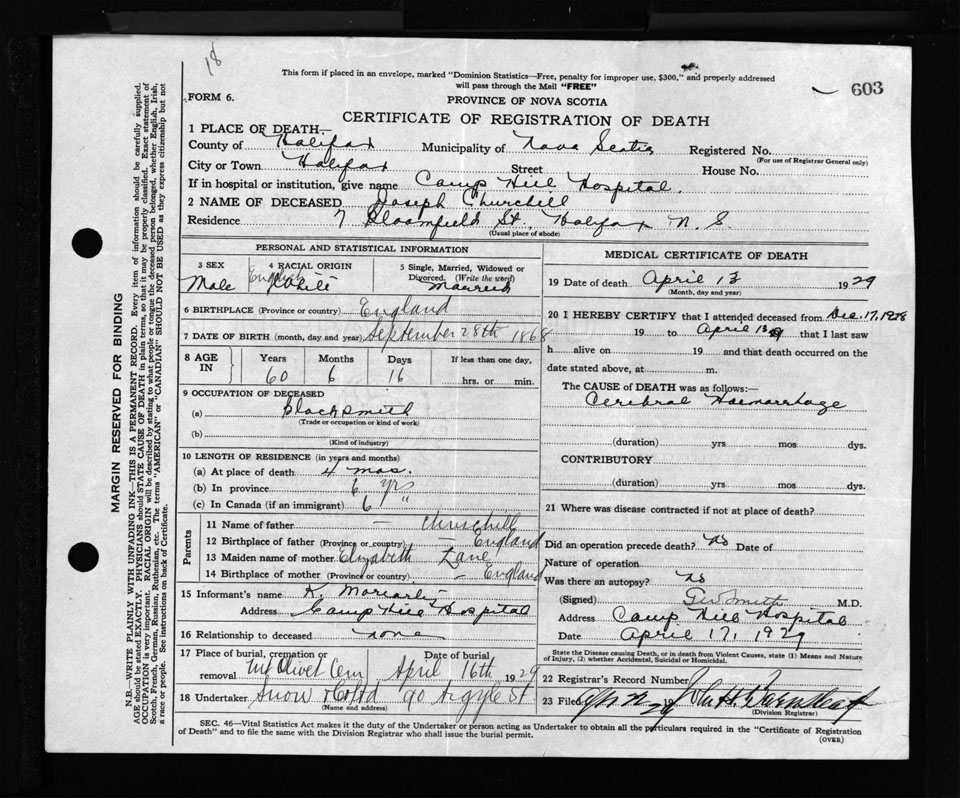 18
This form if placed in an envelope, marked "Dominion Statistics—Free, penalty for improper use, $300," and properly addressed
will pass through the Mail "FREE"
603
FORM 6.
PROVINCE OF NOVA SCOTIA
CERTIFICATE OF REGISTRATION OF DEATH
1 PLACE OF DEATH—
County of Halifax Municipality of Nova Scotia Registered No.
(For use of Registrar General only)
City or Town Halifax Street House No.
If in hospital or institution, give name Camp Hill Hospital.
2 NAME OF DECEASED Joseph Churchill
Residence 7 Bloomfield St. Halifax N. S.
(Usual place of abode)
PERSONAL AND STATISTICAL INFORMATION
3 SEX Male
4 RACIAL ORIGIN English White
5 Single, Married, Widowed or Divorced. (Write the word) Married
6 BIRTHPLACE (Province or country) England
7 DATE OF BIRTH (month, day and year) September 28th 1868
8 AGE IN Years Months Days If less than one day,
60 6 16 hrs. or min.
9 OCCUPATION OF DECEASED
(a) Blacksmith
(Trade or occupation or kind of work)
(b)
(Kind of industry)
10 LENGTH OF RESIDENCE (in years and months)
(a) At place of death 4 mos.
(b) In province 6 yrs
(c) In Canada (if an immigrant) 6 "
Parents
11 Name of father — Churchill
12 Birthplace of father (Province or country) — England
13 Maiden name of mother Elizabeth Lane
14 Birthplace of mother (Province or country) — England
15 Informant's name K. Moriarty
Address Camp Hill Hospital
16 Relationship to deceased none
17 Place of burial, cremation or removal Mt Olivet Cem Date of burial April 16th 1929
18 Undertaker Snow & Co Ltd 90 Argyle St
(Name and address)
MEDICAL CERTIFICATE OF DEATH
19 Date of death April 13 1929
(Month, day and year)
20 I HEREBY CERTIFY that I attended deceased from Dec. 17, 1928
19 to April 13 that I last saw
h alive on 19 and that death occurred on the
date stated above, at m.
The CAUSE of DEATH was as follows:—
Cerebral Haemorrhage
(duration) yrs mos dys.
CONTRIBUTORY
(duration) yrs. mos. dys.
21 Where was disease contracted if not at place of death?
Did an operation precede death? No Date of
Nature of operation
Was there an autopsy? No
(Signed) Smith M.D.
Address Camp Hill Hospital
Date April 17, 1929
State the Disease causing Death, or in death from Violent Causes, state (1) Means and Nature
of Injury, (2) whether Accidental, Suicidal or Homicidal.
22 Registrar's Record Number
23 Filed
(Division Registrar)
SEC. 46—Vital Statistics Act makes it the duty of the Undertaker or person acting as Undertaker to obtain all the particulars required in the "Certificate of Registration
of Death" and to file the same with the Division Registrar who shall issue the burial permit.
(OVER)
MARGIN RESERVED FOR BINDING
N.B.—WRITE PLAINLY WITH UNFADING INK—THIS IS A PERMANENT RECORD. Every item of information should be carefully supplied.
AGE should be stated EXACTLY. PHYSICIANS should STATE CAUSE OF DEATH in plain terms, so that it may be properly classified. Exact statement of
OCCUPATION is very important. RACIAL ORIGIN will be described by stating to what people or tongue the deceased person belonged, whether English, Irish,
Scotch, French, German, Russian, Ruthenian, etc. The terms "AMERICAN" or "CANADIAN" SHOULD NOT BE USED as they express citizenship but not
a race or people. See instructions on back of Certificate.